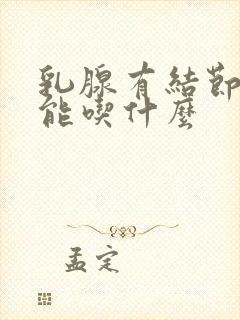 乳腺有結節
能喫什麼
孟定